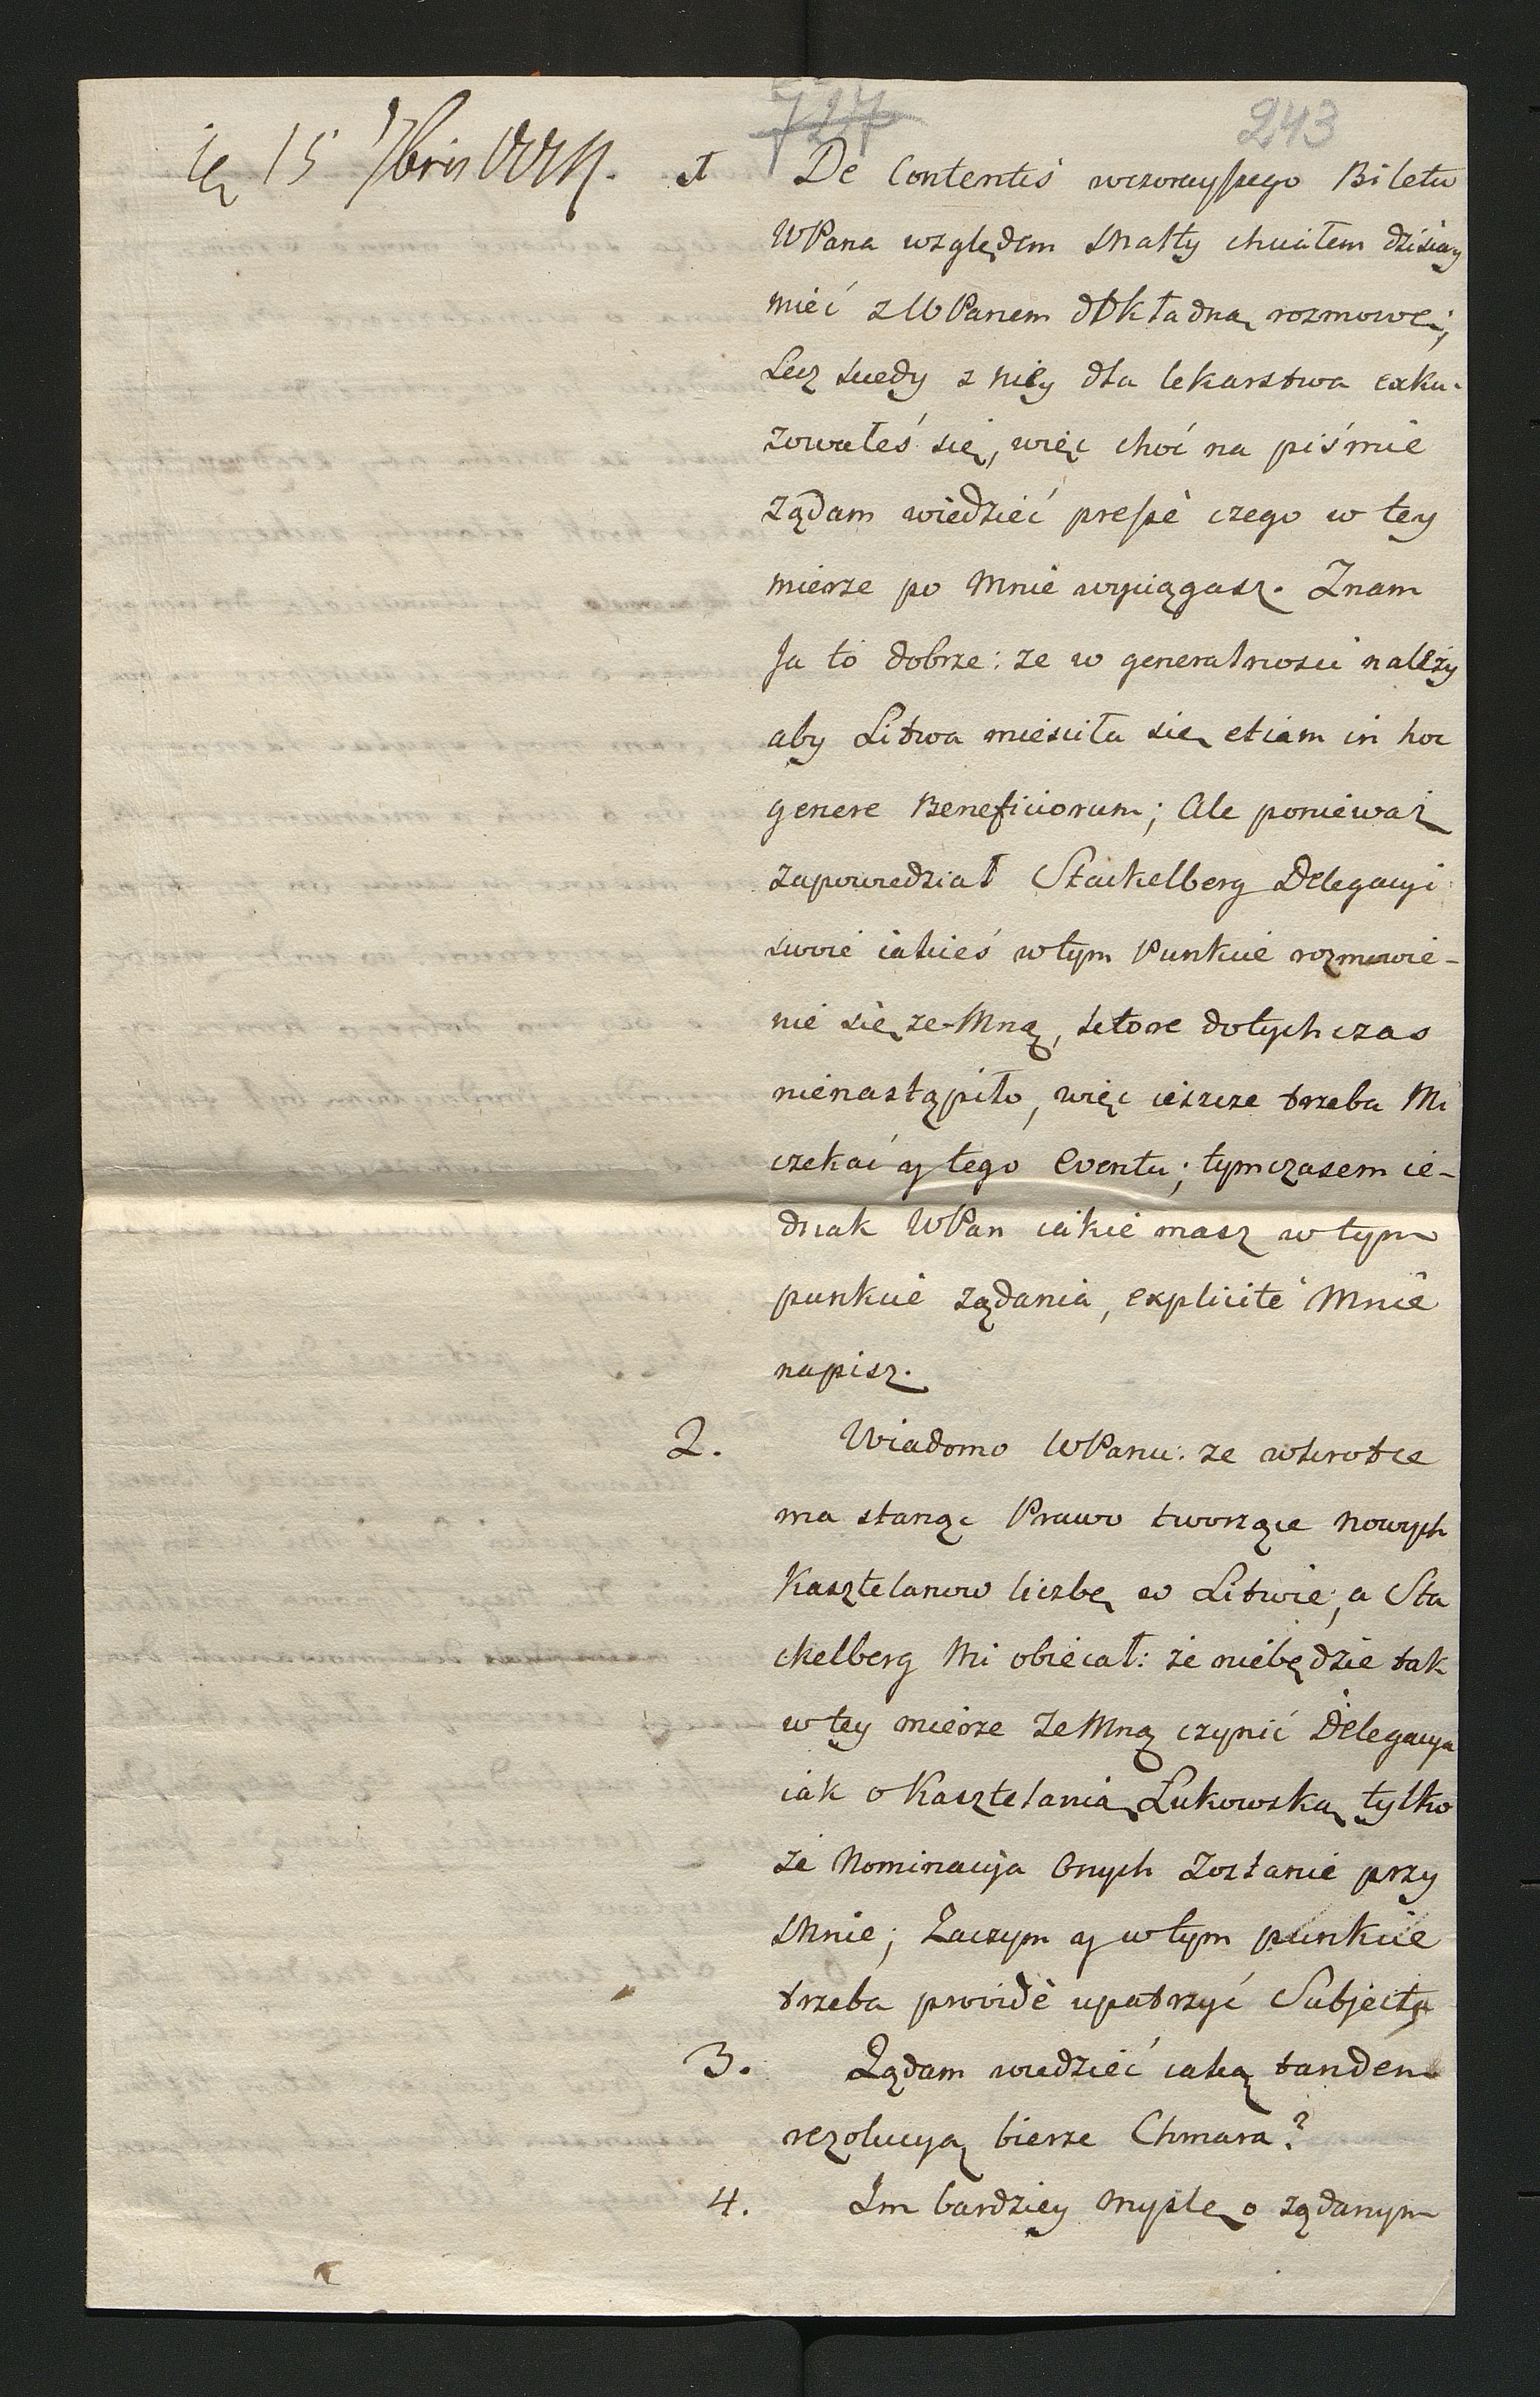 727
243
15 7bris
1 De Contentis wczorayszego Biletu
WPana względem Malty chciałem dzisiay
mieć z WPanem dokładną rozmowę,
Lecz kiedy z niey dla lekarstwa exku-
zowałeś się, więc choć na piśmie
żądam wiedzieć presse czego w tey
mierze po Mnie wyciągasz. Znam
Ja to dobrze: ze w generalnosci należy
aby Litwa mieściła się etiam in hoc
genere Beneficiorum; Ale ponieważ
zapowiedział Stackelberg Delegacyi
swoie iakieś w tym Punkcie rozmowie-
nie się ze Mną, ktore dotychczas
nienastąpiło, więc ieszcze trzeba Mi
czekać y tego Eventu; tymczasem ie-
dnak WPan iakie masz w tym
punkcie żądania, explicite Mnie
napisz.
2. Wiadomo WPanu: ze wkrotce
ma stanąc Prawo tworzące nowych
Kasztelanow liczbę w Litwie; a Sta
ckelberg Mi obiecał: że niebędzie tak
w tey mierze ze Mną czynić Delegacya
iak o Kasztelanią Łukowską tylko
że Nominacya Onych zostanie przy
Mnie; Zaczym y w tym punkcie
trzeba provide upatrzyć Subjecta
3. Żądam wiedzieć iaką tandem
rezolucyą bierze Chmara?
4. Im bardziey myslę o żądanym